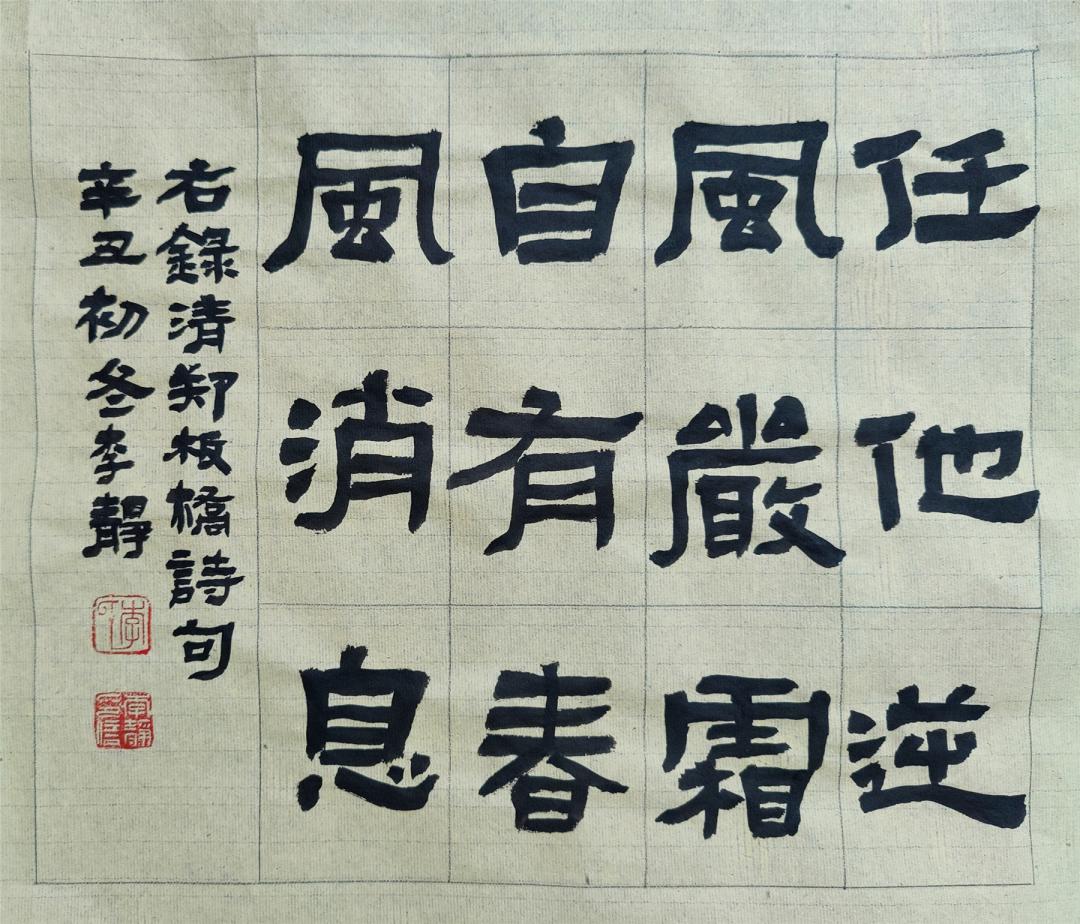 任他逆
風嚴霜
自有春
風消息
右錄清郑板橋詩句
辛丑初冬李靜